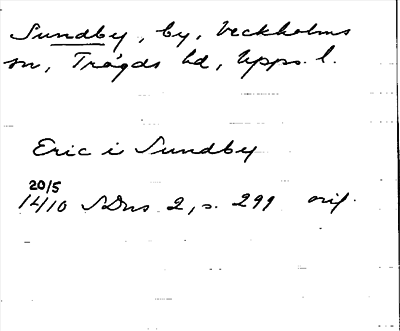 Sundby, by, Veckholms
sn, Trögds hd, Upps. l.
Eric i Sundby
20/5
1410 SDns 2, s. 299 orig.